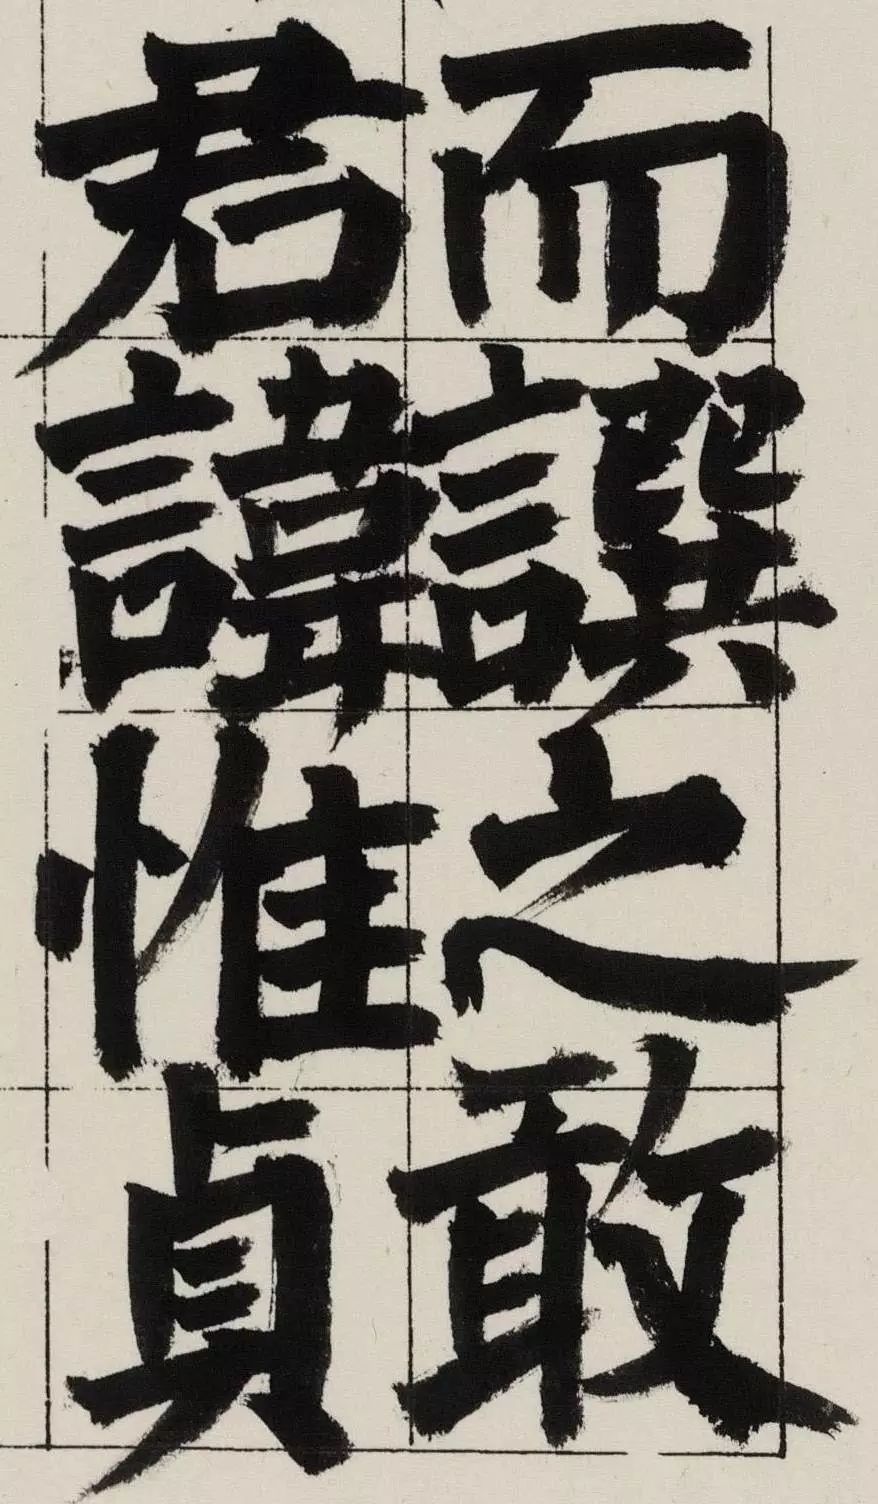 而譔之敢
君諱惟貞